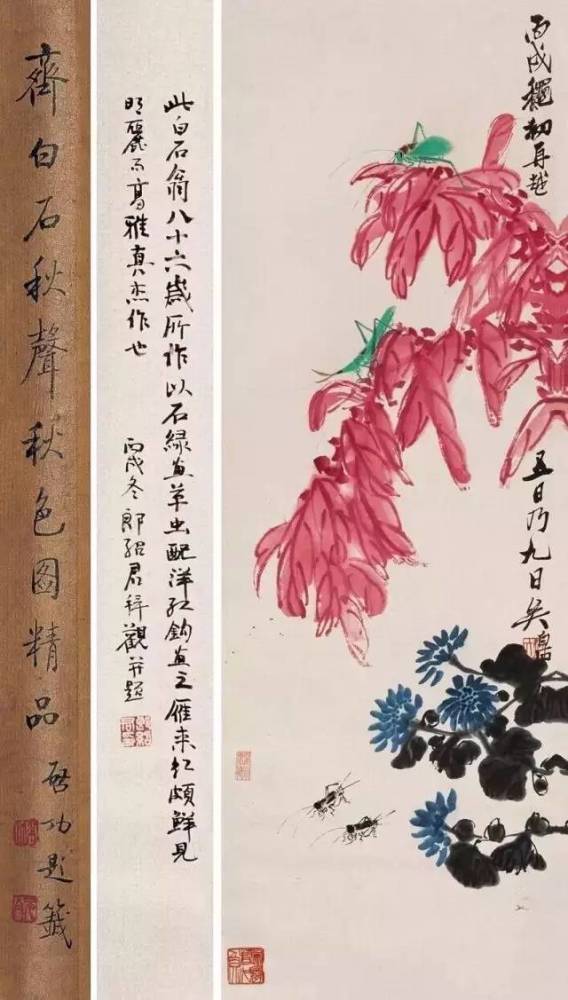 齊白石秋聲秋色圖精品
啓功題籤
此白石翁八十六歲所作以石緑畫草虫配洋红鈎畫之雁来红頗鮮見
明麗而高雅真杰作也
丙戌冬郎紹君拜觀并题
丙戌穐初再越
五日乃九日矣白石